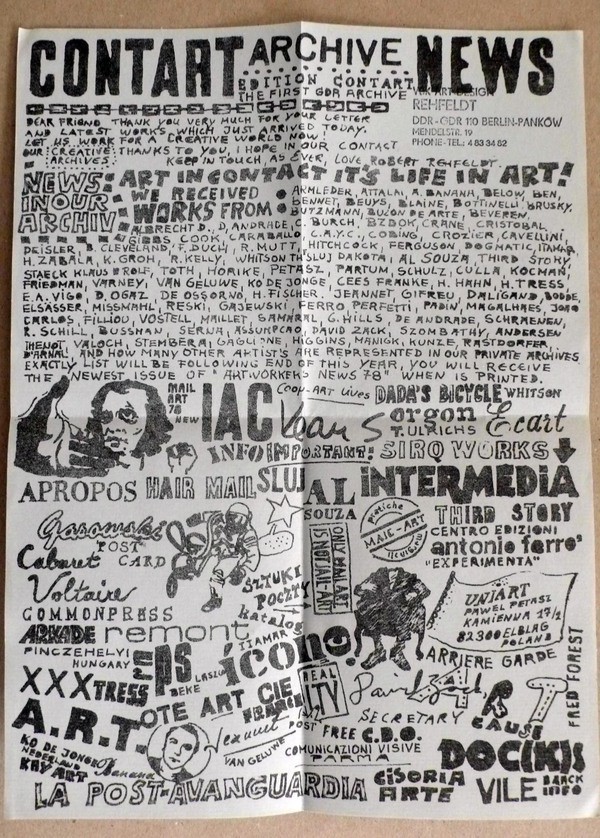 CONTART ARCHIVE NEWS
EDITION CONTART
THE FIRST GDR ARCHIVE
REHFELDT
DDR-GDR 110 BERLIN-PANKOW
MENDELSTR. 19
PHONE-TEL.: 4 83 34 82
DEAR FRIEND THANK YOU VERY MUCH FOR YOUR LETTER
AND LATEST WORKS, WHICH JUST ARRIVED TODAY.
LET US WORK FOR A CREATIVE WORLD NOW
OUR CREATIVE THANKS TO YOU, I HOPE IN OUR CONTACT
ARCHIVES: KEEP IN TOUCH, AS EVER, LOVE ROBERT REHFELDT.
NEWS: ART IN CONTACT IT'S LIFE IN ART!
IN OUR
ARCHIV
WE RECEIVED
WORKS FROM
ARMLEDER, ATTALAI, A. BANANA, BELOW, BEN,
BENNET, BEUYS, BLAINE, BOTTINELLI, BRUSKY,
BUTZMANN, BUZON DE ARTE, BEVEREN,
ALBRECHT D., D, ANDRADE, C. BURCH, BZDOK, CRANE, CRISTOBAL,
GIBBS, COOK, CARABALLO, C.A.Y.C., CROZIER, CAVELLINI,
DEISLER, B. CLEVELAND, F. DUCH, R. MUTT, HITCHCOCK, FERGUSON, DOGMATIC,
H. ZABALA, K. GROH, R. KELLY, WHITSON SLUJ DAKOTA, AL SOUZA, THIRD STORY
STAECK KLAUS TOTH, HORIKE, PETASZ, PARTUM, SCHULZ, CULLA, KOCMAN,
FRIEDMAN, VARNEY, VAN GELUWE, KO DE JONGE, CEES FRANKE, H. HAHN, H. TRESS
E.A. VIGO, D. OGAZ, DE OSSORNO, H. FISCHER. JEANNET, GIFREU, DALIGAND,
ELSÄSSER, MISSMAHL, RESKI, GAJEWSKI PADIN, MAGALHAES, JOAO
CARLOS, FILLIOU, VOSTELL, MAILLET, SAMARAL, G. HILL, DE ANDRADE, SCHRAENEN,
R. SCHILL, BUSSMAN, SERNA, ASSUMPCAO, DAVID ZACK, SZOMBATHY, ANDERSEN
THENOT, VALOCH, STEMBERA, GAGLIONE, HIGGINS, MANIGK, KUNZE, RASTDORFER,
D'ARNAL, AND HOW MANY OTHER ARTISTS ARE REPRESENTED IN OUR PRIVATE ARCHIVES
EXACTLY LIST WILL BE FOLLOWING END OF THIS YEAR, YOU WILL RECEIVE
THE NEWEST ISSUE OF "ARTWORKERS NEWS 78" WHEN IS PRINTED.
MAIL
ART
78
NEW
IAC
COOP-ART lives DADA'S BICYCLE WHITSON
orgon
T. ULRICHS Ecart
INFO IMPORTANT: SIRQ WORKS
APROPOS HAIR MAIL SLUJ
AL
SOUZA
INTERMEDIA
THIRD STORY
CENTRO EDIZIONI
antonio ferro'
"EXPERIMENTA"
MAIL-ART
Gasowski
POST
CARD
Cabaret
Voltaire
ONLY MAIL ART
IS NOT MAIL ART
SZTUKI
POCZTY
katalog
COMMONPRESS
UNIART
PAWEL PETASZ
KAMIENNA 17/2
82300 ELBLAG
POLAND
ARKADE remont
PINCZEHELYI
HUNGARY
ps
BEKE LASZLO
icono
ARRIERE GARDE
FRED FOREST
XXXTRESS
OTE ART CIE
FRANCE
REAL
David Zack
SECRETARY
CAUSE
A.R.T.
KO DE JONGE
NEDERLAND
KRY ART
Banana
Jeannet
VAN GELUWE
POST FREE C.D.O.
COMUNICAZIONI VISIVE
PARMA
DOC(K)S
LA POST-AVANGUARDIA
CISORIA
ARTE
VILE
BANCK
INFO